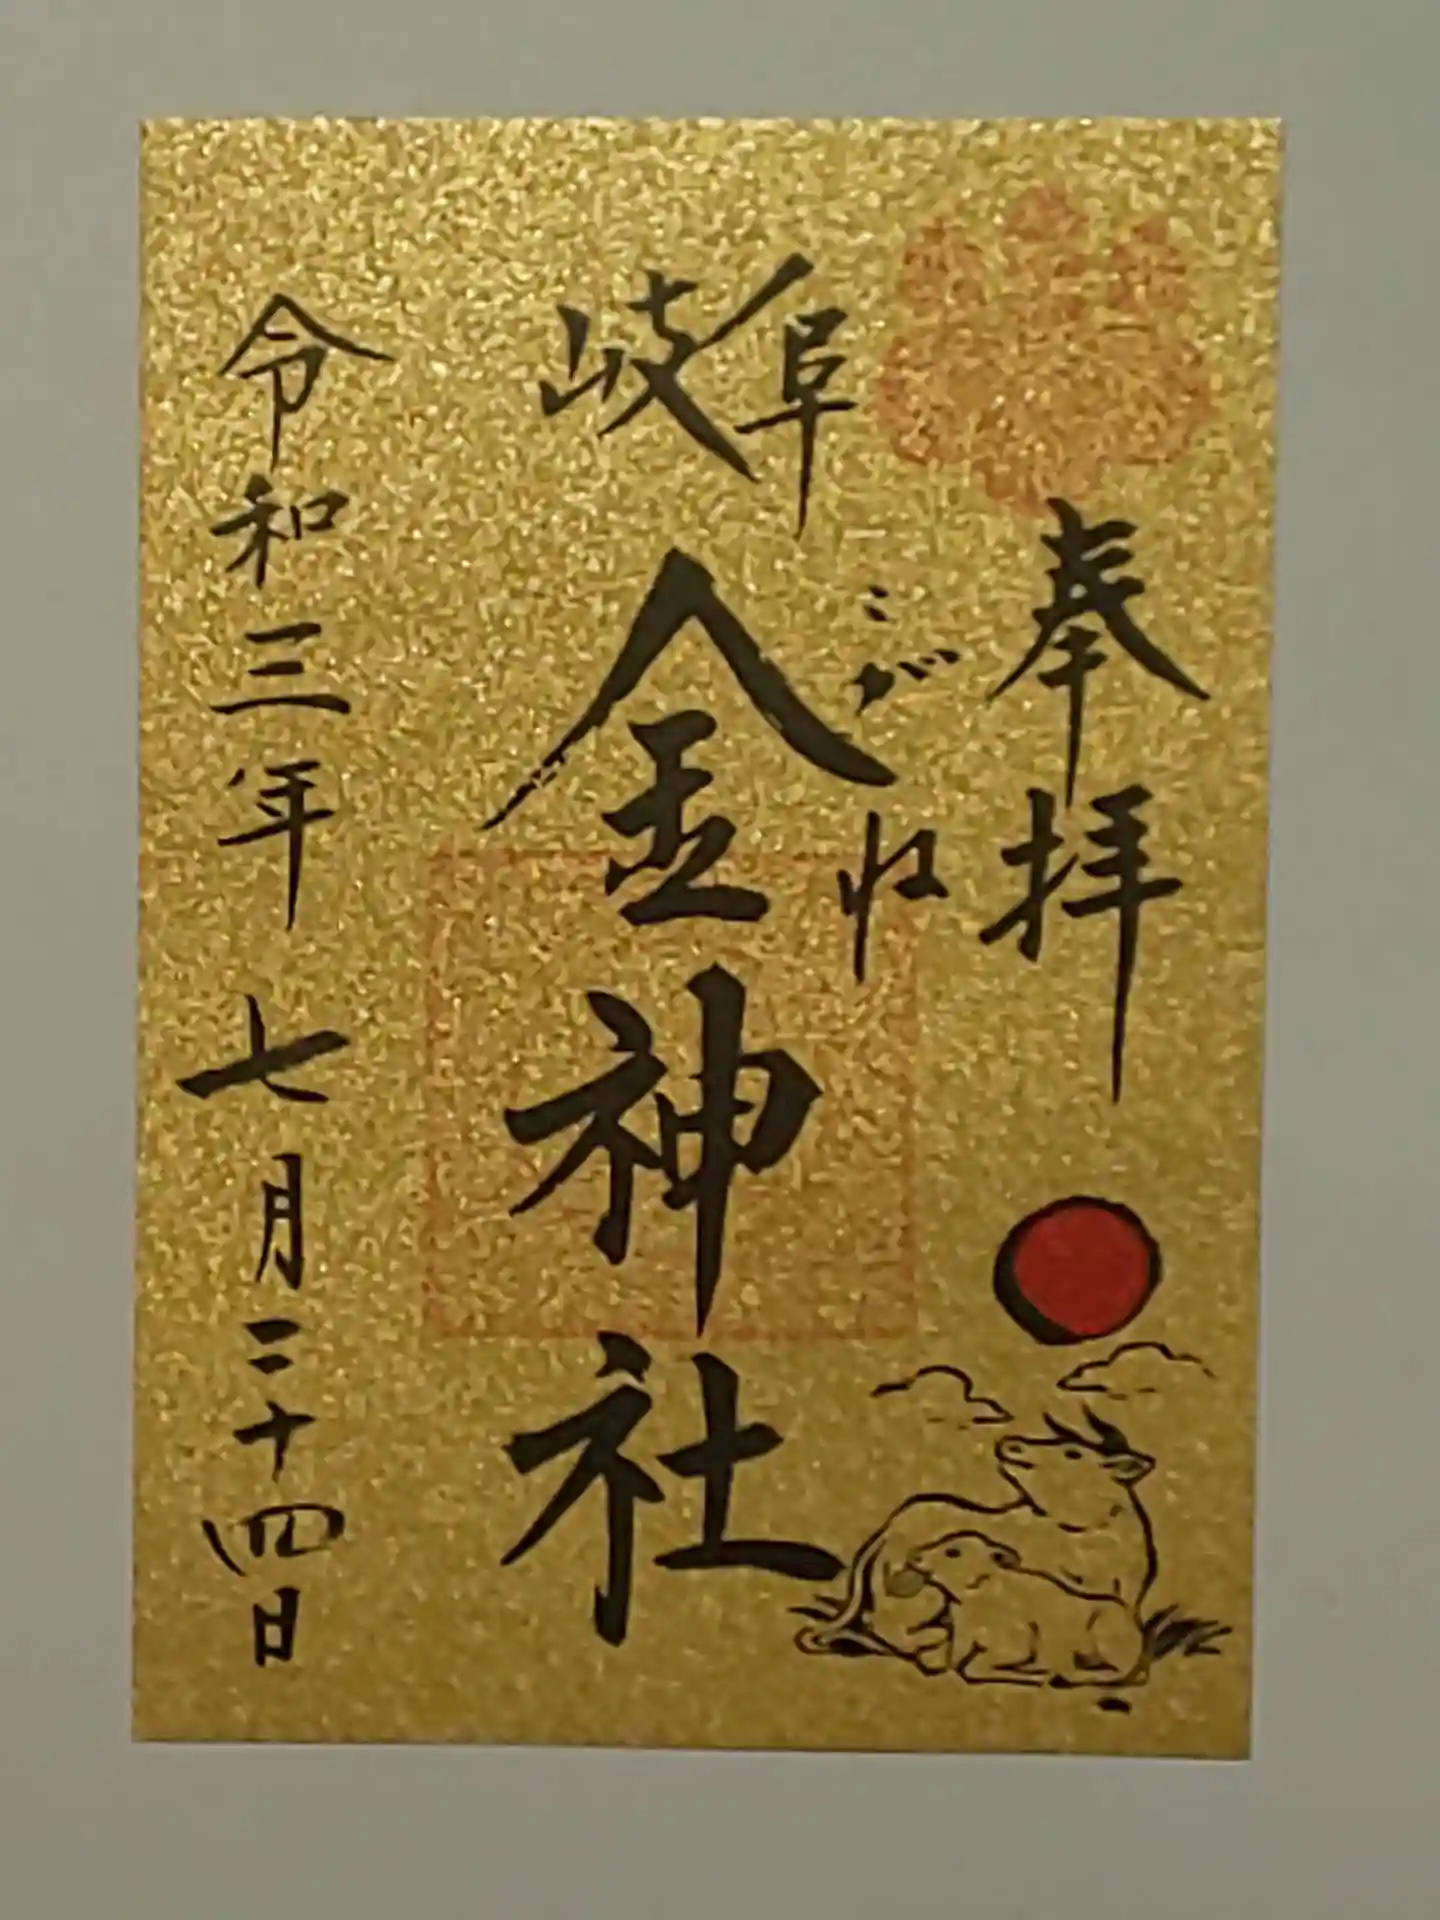 奉拝
こがね
岐阜
金神社
令和三年七月二十四日